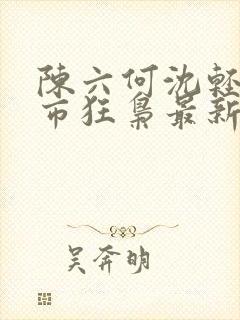 陳六何沈輕
市狂梟最新
吴奔明